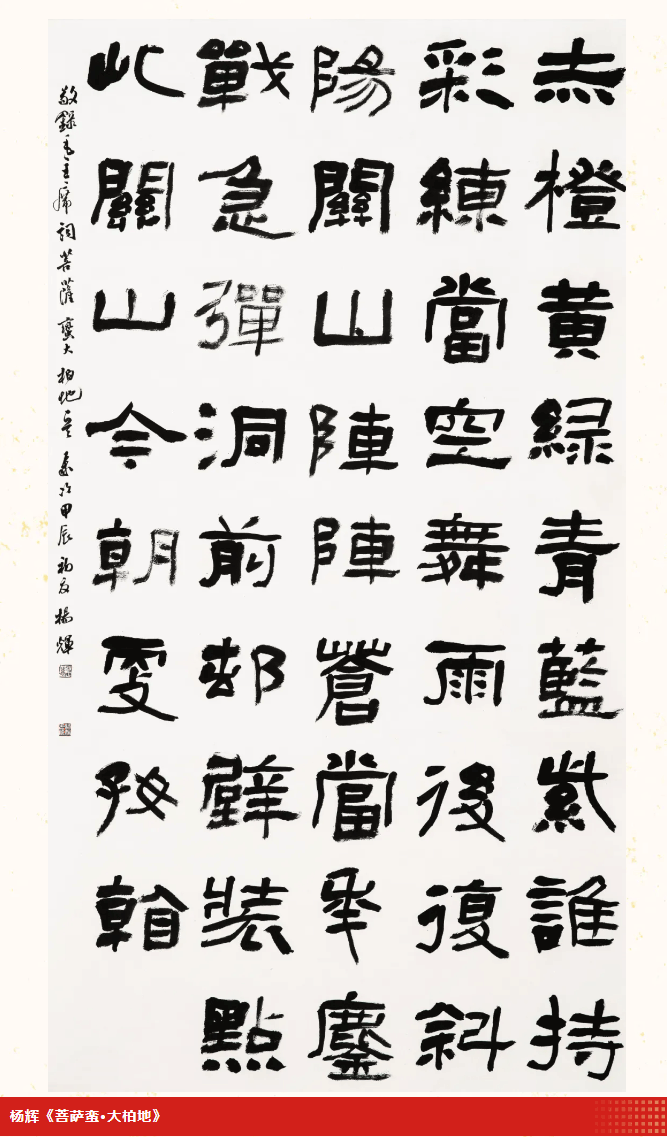 赤橙黄緑青藍紫誰持
彩練當空舞雨後復斜
陽關山陣陣蒼當年鏖
戰急彈洞前邨壁裝點
此關山今朝更好看
敬錄毛主席詞菩薩蠻大柏地 歲次甲辰初夏楊輝
杨辉《菩萨蛮•大柏地》